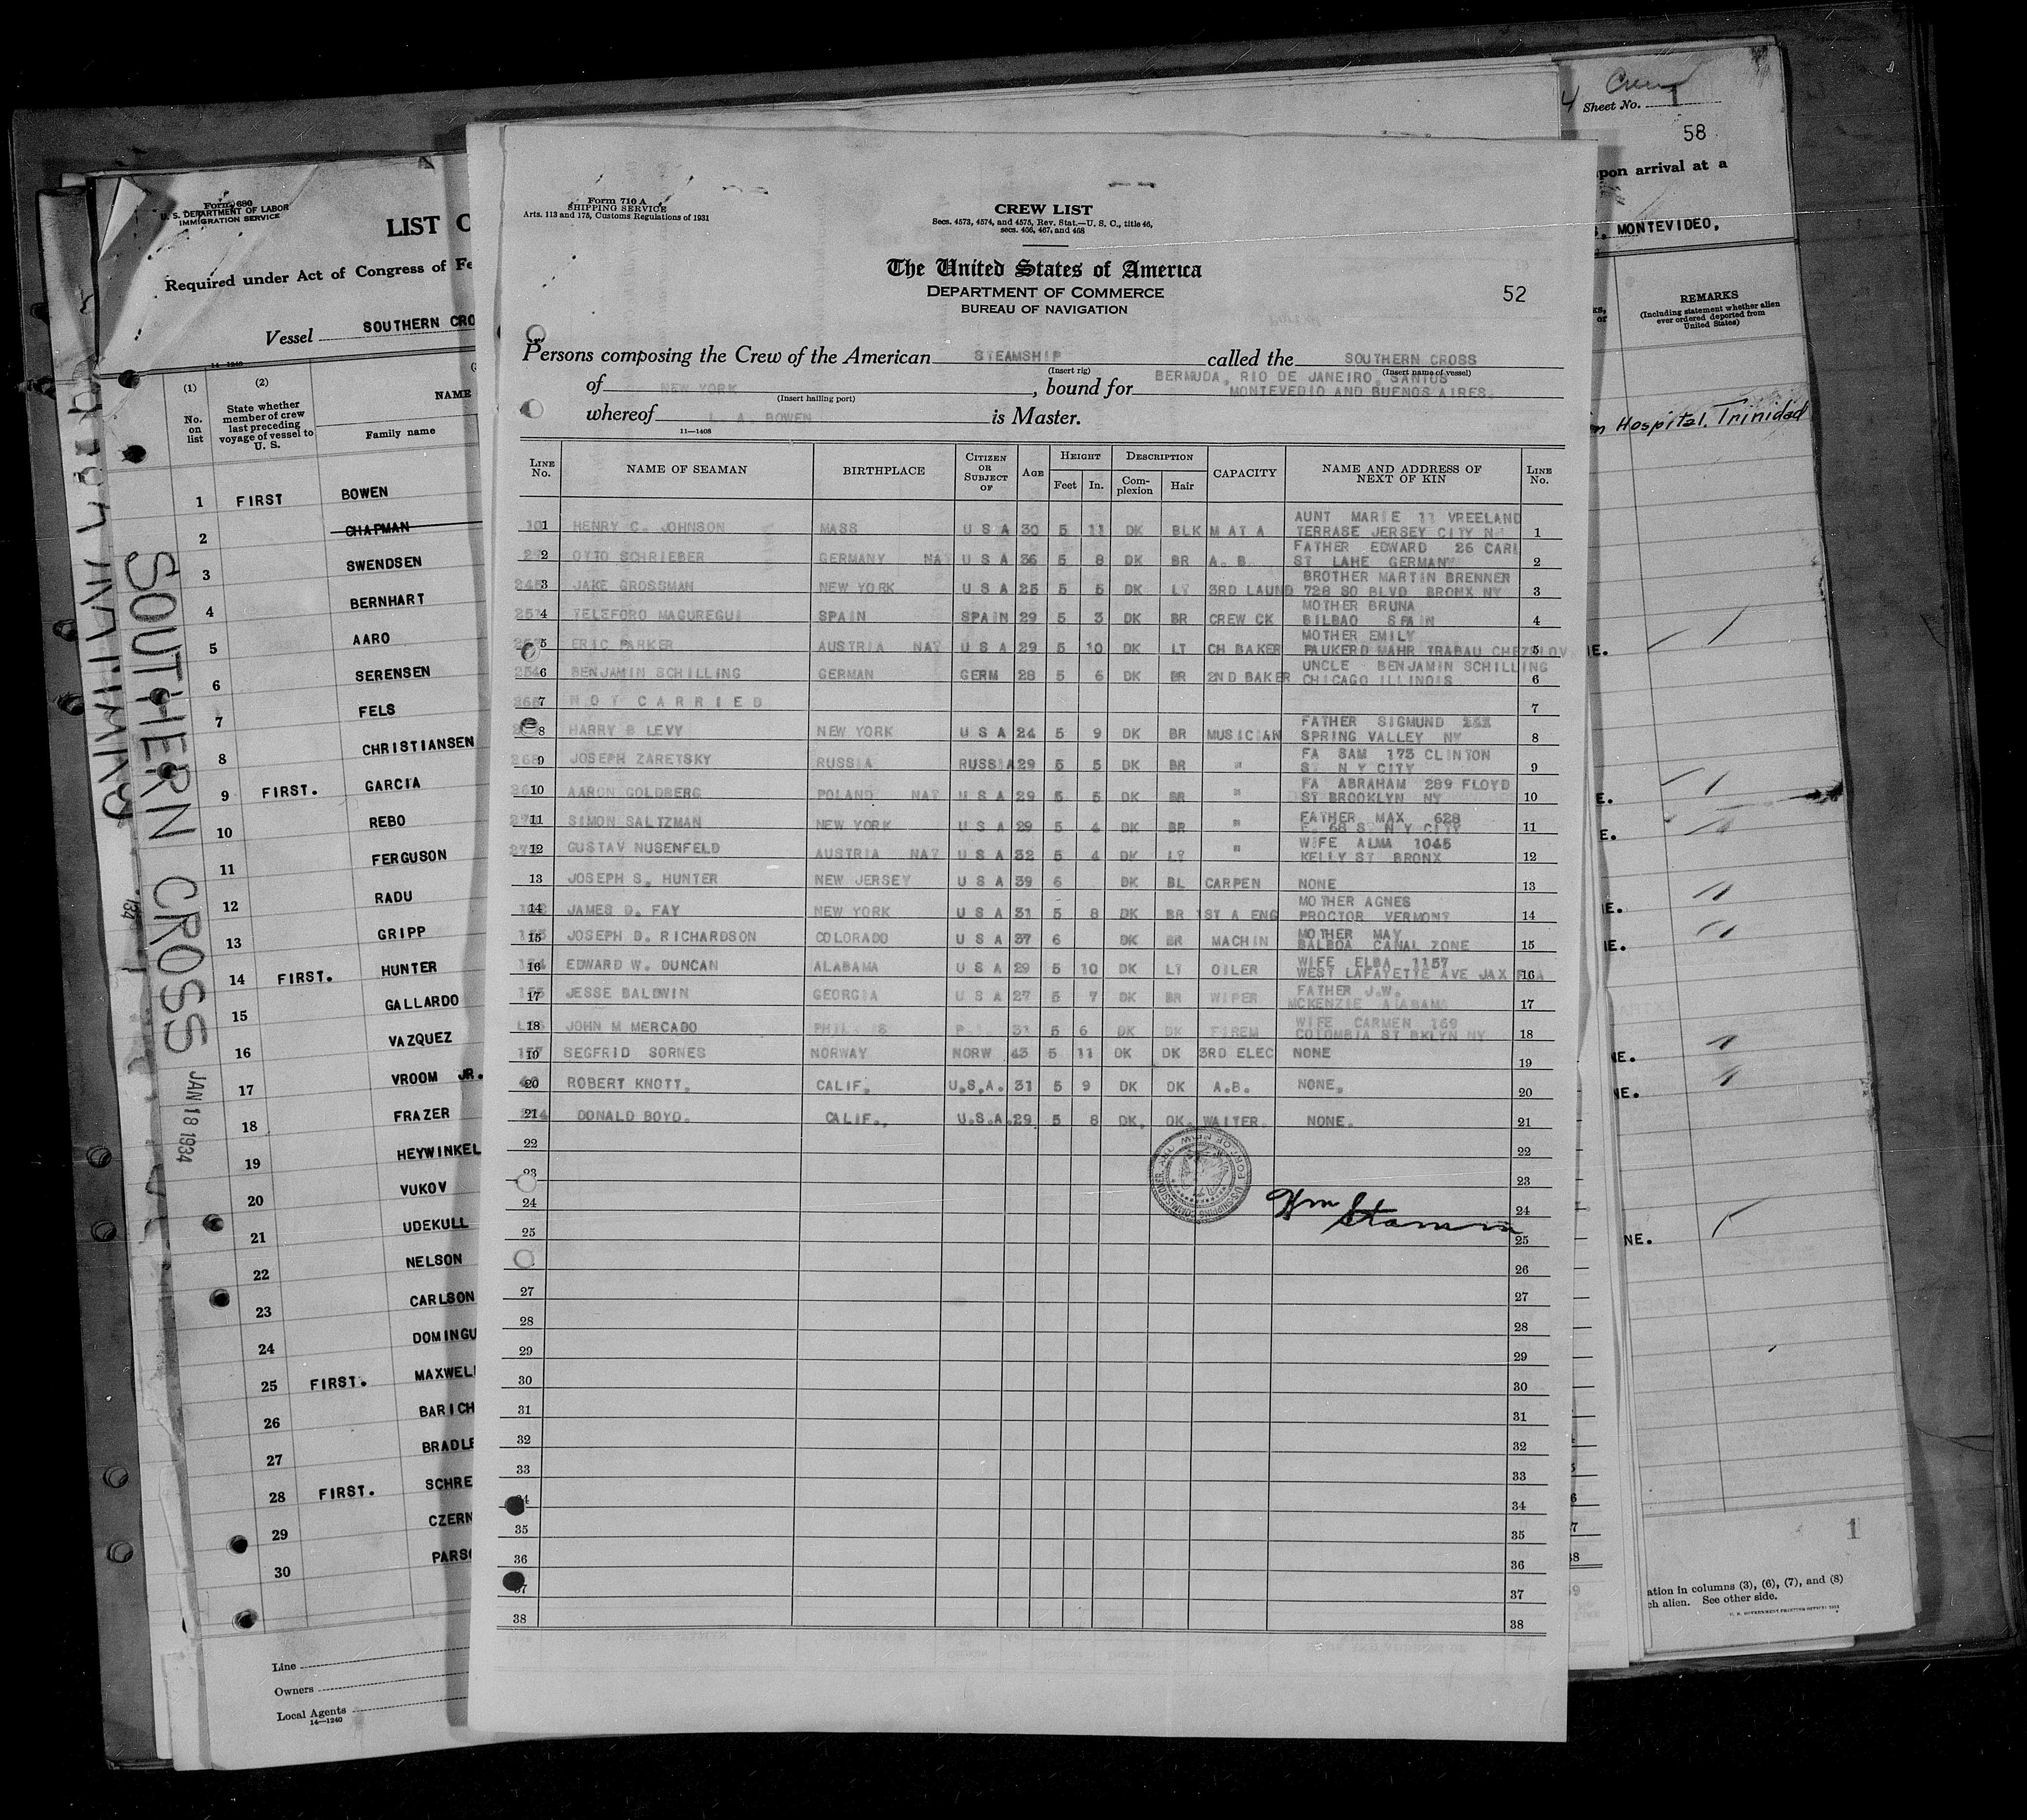 Form 680
U. S. DEPARTMENT OF LABOR
IMMIGRATION SERVICE
LIST
Required under Act of Congress of
Vessel SOUTHERN CRO
14—1240
(1) (2)
No. on list
State whether member of crew last preceding voyage of vessel to U. S.
NAME
Family name
1 FIRST BOWEN
2 CHAPMAN
3 SWENDSEN
4 BERNHART
5 AARO
6 SERENSEN
7 FELS
8 CHRISTIANSEN
9 FIRST. GARCIA
10 REBO
11 FERGUSON
12 RADU
13 GRIPP
14 FIRST. HUNTER
15 GALLARDO
16 VAZQUEZ
17 VROOM JR.
18 FRAZER
19 HEYWINKEL
20 VUKOV
21 UDEKULL
22 NELSON
23 CARLSON
24 DOMINGU
25 FIRST. MAXWELL
26 BARICH
27 BRADLE
28 FIRST. SCHRE
29 CZERN
30 PARSO
Line
Owners
Local Agents
14—1240
SOUTHERN CROSS
JAN 18 1934
Form 710 A
SHIPPING SERVICE
Arts. 113 and 175, Customs Regulations of 1931
CREW LIST
Secs. 4573, 4574, and 4575, Rev. Stat.—U. S. C., title 46,
secs. 466, 467, and 468
The United States of America
DEPARTMENT OF COMMERCE
BUREAU OF NAVIGATION
52
Persons composing the Crew of the American STEAMSHIP called the SOUTHERN CROSS
(Insert rig) (Insert name of vessel)
of NEW YORK, bound for BERMUDA, RIO DE JANEIRO, SANTOS
MONTEVEDIO AND BUENOS AIRES.
(Insert hailing port)
whereof L. A. BOWEN is Master.
11—1408
LINE No. NAME OF SEAMAN BIRTHPLACE CITIZEN OR SUBJECT OF AGE HEIGHT Feet In. DESCRIPTION Complexion Hair CAPACITY NAME AND ADDRESS OF NEXT OF KIN LINE No.
1 HENRY C. JOHNSON MASS U S A 30 5 11 DK BLK M AT A AUNT MARIE 11 VREELAND TERRASE JERSEY CITY NJ 1
2 OTTO SCHRIEBER GERMANY NAT U S A 36 5 8 DK BR A. B. FATHER EDWARD 26 CARL ST LAHE GERMANY 2
3 JAKE GROSSMAN NEW YORK U S A 25 5 5 DK LT 3RD LAUND BROTHER MARTIN BRENNER 728 SO BLVD BRONX NY 3
4 TELEFORO MAGUREGUI SPAIN SPAIN 29 5 3 DK BR CREW CK MOTHER BRUNA BILBAO SPAIN 4
5 ERIC PARKER AUSTRIA NAT U S A 29 5 10 DK LT CH BAKER MOTHER EMILY PAUKERD MAHR TRABAU CHEZSLOV 5
6 BENJAMIN SCHILLING GERMAN GERM 28 5 6 DK BR 2ND BAKER UNCLE BENJAMIN SCHILLING CHICAGO ILLINOIS 6
7 NOT CARRIED 7
8 HARRY B LEVY NEW YORK U S A 24 5 9 DK BR MUSICIAN FATHER SIGMUND SPRING VALLEY NY 8
9 JOSEPH ZARETSKY RUSSIA RUSSIA 29 5 5 DK BR " FA SAM 173 CLINTON ST N Y CITY 9
10 AARON GOLDBERG POLAND NAT U S A 29 5 5 DK BR " FA ABRAHAM 289 FLOYD ST BROOKLYN NY 10
11 SIMON SALTZMAN NEW YORK U S A 29 5 4 DK BR " FATHER MAX 628 E. 68 S N Y CITY 11
12 GUSTAV NUSENFELD AUSTRIA NAT U S A 32 5 4 DK LT " WIFE ALMA 1045 KELLY ST BRONX 12
13 JOSEPH S. HUNTER NEW JERSEY U S A 39 6 DK BL CARPEN NONE 13
14 JAMES D. FAY NEW YORK U S A 31 5 8 DK BR 1ST A ENG MOTHER AGNES PROCTOR VERMONT 14
15 JOSEPH D. RICHARDSON COLORADO U S A 37 6 DK BR MACHIN MOTHER MAY BALBOA CANAL ZONE 15
16 EDWARD W. DUNCAN ALABAMA U S A 29 5 10 DK LT OILER WIFE ELBA 1157 WEST LAFAYETTE AVE JAX FLA 16
17 JESSE BALDWIN GEORGIA U S A 27 5 7 DK BR WIPER FATHER J.W. MCKENZIE ALABAMA 17
18 JOHN M MERCADO PHIL IS P.I. 31 5 6 DK DK FIREM WIFE CARMEN 169 COLOMBIA ST BKLYN NY 18
19 SEGFRID SORNES NORWAY NORW 43 5 11 DK DK 3RD ELEC NONE 19
20 ROBERT KNOTT. CALIF. U.S.A. 31 5 9 DK DK A.B. NONE. 20
21 DONALD BOYD. CALIF., U.S.A. 29 5 8 DK. DK. WAITER. NONE. 21
22 22
23 23
24 24
25 25
26
27 27
28 28
29 29
30 30
31 31
32 32
33 33
34 34
35 35
36 36
37 37
38 38
U.S. SHIPPING COMMISSIONER PORT OF NEW YORK
Wm Stamm
Crew
Sheet No. 1
58
upon arrival at a
MONTEVIDEO,
REMARKS
(Including statement whether alien ever ordered deported from United States)
Hospital, Trinidad
NE.
1
ation in columns (3), (6), (7), and (8)
ch alien. See other side.
U. S. GOVERNMENT PRINTING OFFICE